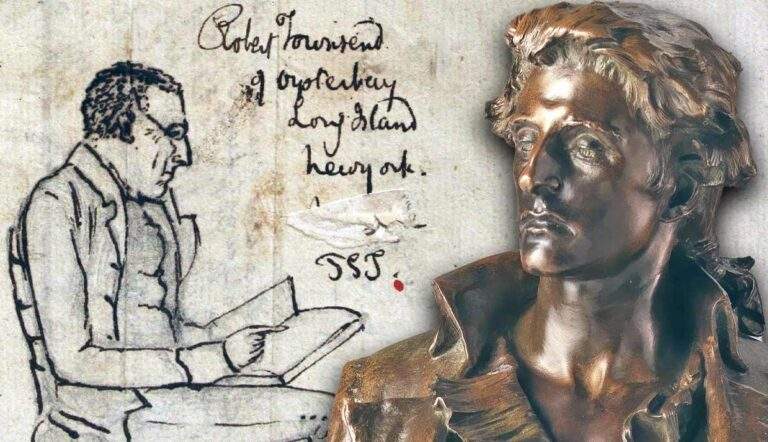 Robert Townsend
of Oysterbay
Long Island
Newyork.
TST.